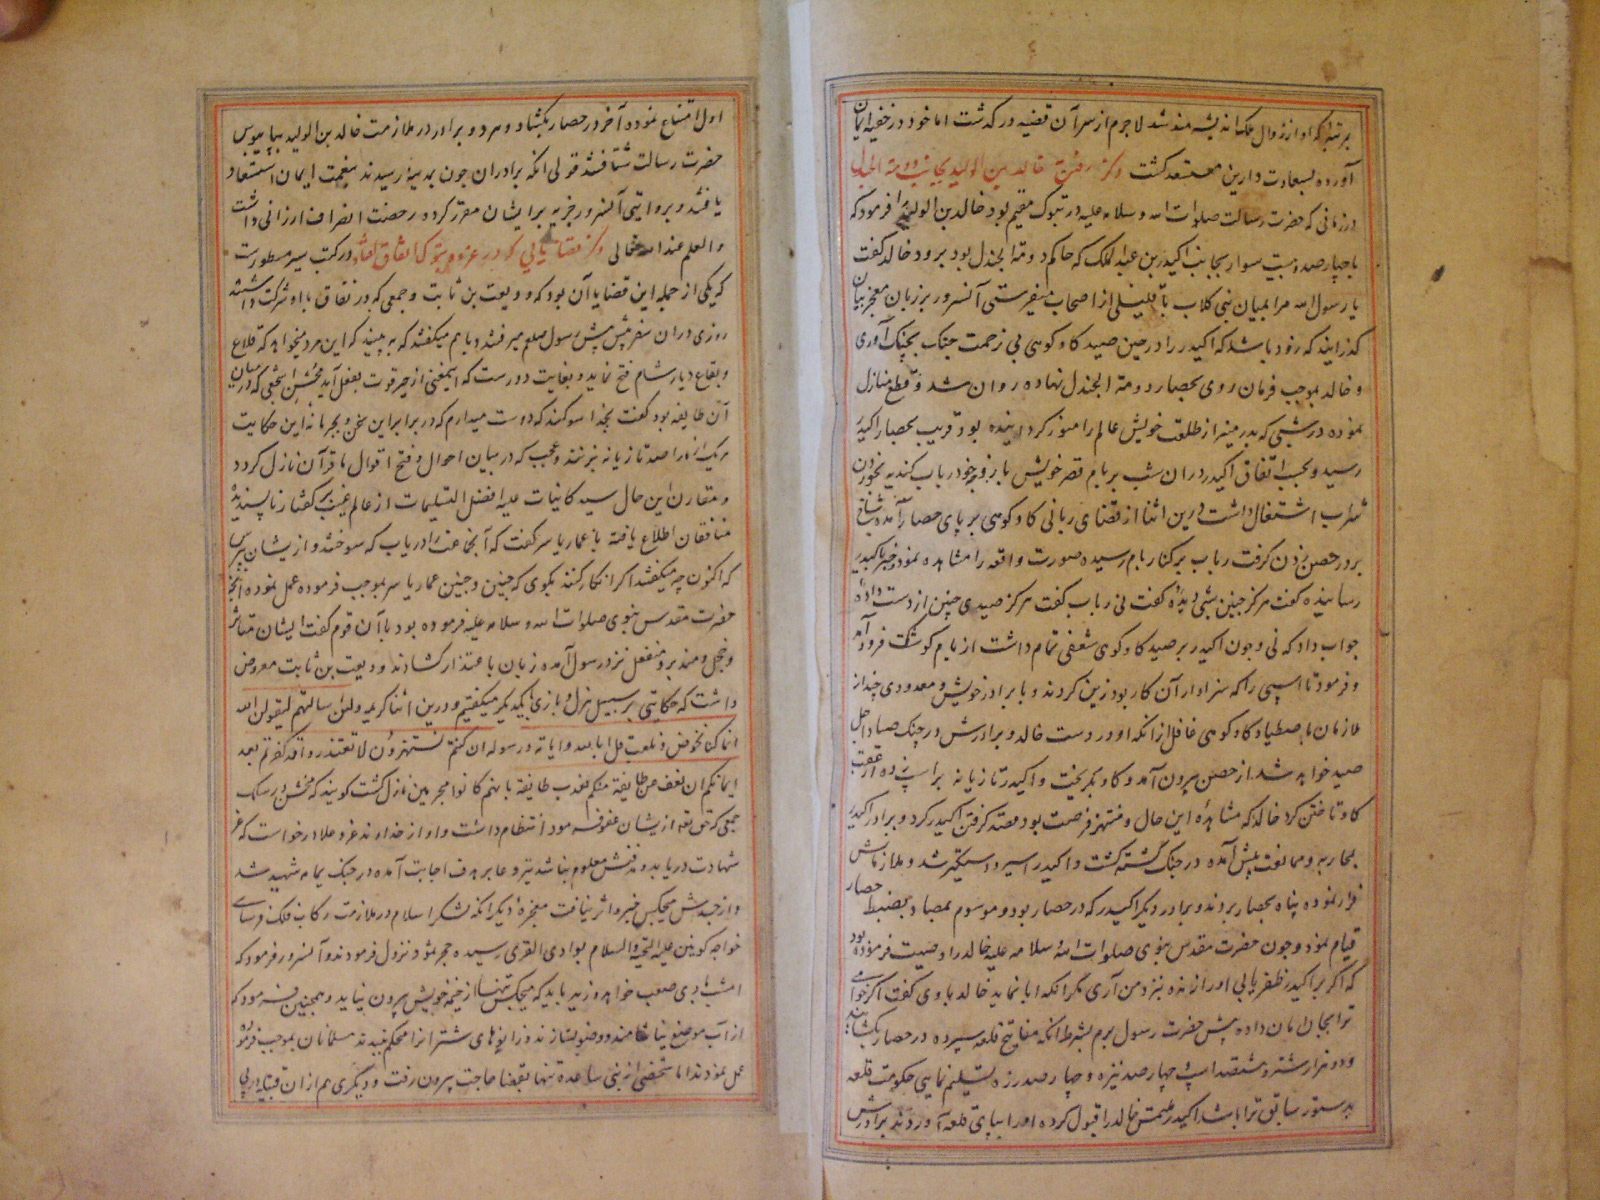 بر تبوک او از زوال مملکت اندیشه مند شد لاجرم از سر آن قضیه در گذشت اما خود در خفیه ایمان
آورده بسعادت دارین مستعد گشت ذکر رفتن خالد بن الولید بجانب دومة الجندل
در زمانی که حضرت رسالت صلوات الله و سلامه علیه در تبوک مقیم بود خالد بن الولید را فرمود که
با چهار صد و بیست سوار بجانب اکیدر بن عبد الملک که حاکم دومة الجندل بود برود خالد گفت
یا رسول الله مرا بمیان بنی کلاب با قلیلی از اصحاب میفرستی آنسرور بر زبان معجز بیان
گذرانید که زود باشد که اکیدر را در حین صید کاو کوهی بی زحمت جنک بچنک آوری
و خالد بموجب فرمان روی بحصار دومة الجندل نهاده روان شد و قطع منازل
نموده در شبی که بدر منیر از طلعت خویش عالم را منور کردانیده بود قریب بحصار اکیدر
رسید و بحسب اتفاق اکیدر در ان شب بر بام قصر خویش با زوجه خود رباب کندیه بخوردن
شراب اشتغال داشت درین اثنا از قضای ربانی کاو کوهی بر پای حصار آمده شاخ
بر در حصن زدن کرفت رباب بر کنار بام رسیده صورت واقعه را مشاهده نمود و خبر باکیدر
رسانیده کفت هرکز چنین شبی دیده کفت نی رباب کفت هرکز صیدی چنین از دست داده
جواب داد که نی و چون اکیدر بر صید کاو کوهی شعفی تمام داشت از بام کوشک فرود آمد
و فرمود تا اسپی را که سزاوار آن کار بود زین کردند و با برادر خویش و معدودی چند از
ملازمان باصطیاد کاو کوهی غافل از انکه او در دست خالد و برادرش در چنک صیاد اجل
صید خواهد شد از حصن بیرون آمد و کاو بکریخت و اکیدر تازیانه بر اسپ زده از عقب
کاو تاختن کرد خالد که مشاهده این حال و منتهز فرصت بود قصد کرفتن اکیدر کرد و برادر اکیدر
بمحاربه و ممانعت پیش آمده در جنک کشته کشت و اکیدر اسیر و دستکیر شد و ملازمانش
فرار نموده پناه بحصار بردند و برادر دیکر اکیدر که در حصار بود و موسوم بمصاد بضبط حصار
قیام نمود و چون حضرت مقدس نبوی صلوات الله سلامه علیه خالد را وصیت فرموده بود
که اکر بر اکیدر ظفر یابی او را زنده نزد من آری مکر انکه ابا نماید خالد با وی کفت اکر خواهی
ترا بجان امان داده پیش حضرت رسول برم بشرط آنکه مفاتیح قلعه سپرده در حصار بکشایند
و دو هزار شتر و هشتصد اسپ و چهار صد نیزه و چهار صد زره تسلیم نمایی حکومت قلعه
بدستور سابق ترا باشد اکیدر ملتمس خالد را قبول کرده او را بپای قلعه آوردند برادرش
اول امتناع نموده آخر در حصار بکشاد و هر دو برادر در ملازمت خالد بن الولید بپایبوس
حضرت رسالت شتافتند قولی انکه برادران چون بمدینه رسیدند بنعمت ایمان استسعاد
یافتند و بروایتی آنسرور جزیه بر ایشان مقرر کرده رخصت انصراف ارزانی داشت
والعلم عند الله تعالی ذکر قضایایی که در غزوه تبوک اتفاق افتاد در کتب سیر مسطورست
که یکی از جمله این قضایا آن بود که ودیعت بن ثابت و جمعی که در نفاق با او شرکت داشتند
روزی در ان سفر پیش پیش رسول صلعم میرفتند و با هم میکفتند که ببینید که این مرد میخواهد که قلاع
و بقاع دیار شام فتح نماید و بغایت دورست که اینمعنی از حیز قوت بفعل آید مخشن اشجعی که در میان
آن طایفه بود کفت بخدا سوکند که دوست میدارم که در برابر این سخن و بجرمانه این حکایت
هر یک از ما را صد تازیانه بزنند و عجب که در بیان احوال و قبح اقوال ما قرآن نازل کردد
و مقارن این حال سید کاینات علیه افضل التسلیمات از عالم غیب بر کفتار ناپسندیده
منافقان اطلاع یافته با عمار یاسر کفت که آنجماعت را دریاب که سوختند و از یشان بپرس
که اکنون چه میکفتند اکر انکار کنند بکوی که چنین و چنین عمار یاسر بموجب فرموده عمل نموده آنچه
حضرت مقدس نبوی صلوات الله و سلامه علیه فرموده بود با آن قوم کفت ایشان متاثر
و خجل و منفعل نزد رسول آمده زبان باعتذار کشادند و ودیعت بن ثابت معروض
داشت که حکایتی بر سبیل هزل و بازی با یکدیکر میکفتیم و درین اثنا کریمه ولئن سالتهم لیقولن الله
انما کنا نخوض و نلعب قل ابالله و ایاته و رسوله ان کنتم تستهزؤن لا تعتذروا قد کفرتم بعد
ایمانکم ان نعف عن طایفة منکم نعذب طایفة بانهم کانوا مجرمین نازل کشت کویند که مخشن در سلک
جمعی که حق تعالی از یشان عفو فرمود انتظام داشت و او از خداوند عز و علا درخواست که عز
شهادت دریابد و مدفنش معلوم نباشد تیر دعا بر هدف اجابت آمده در جنک یمامه شهید شد
و از جسدش هیچکس خبر و اثر نیافت معجزه دیکر انکه لشکر اسلام در ملازمت رکاب فلک فرسای
خواجه کونین علیه التحیة والسلام بوادی القری رسیده حجر ثمود نزول فرمودند و آنسرور فرمود که
امشب بادی صعب خواهد وزید باید که هیچکس تنها از خیمه خویش بیرون نیاید و همچنین فرمود که
از آب موضع نیاشامند و وضو نسازند و زانوهای شتر انرا محکم ببندند مسلمانان بموجب فرموده
عمل نمودند اما شخصی از بنی ساعده تنها بقضا حاجت بیرون رفت و دیکری هم از ان قبیله در پی